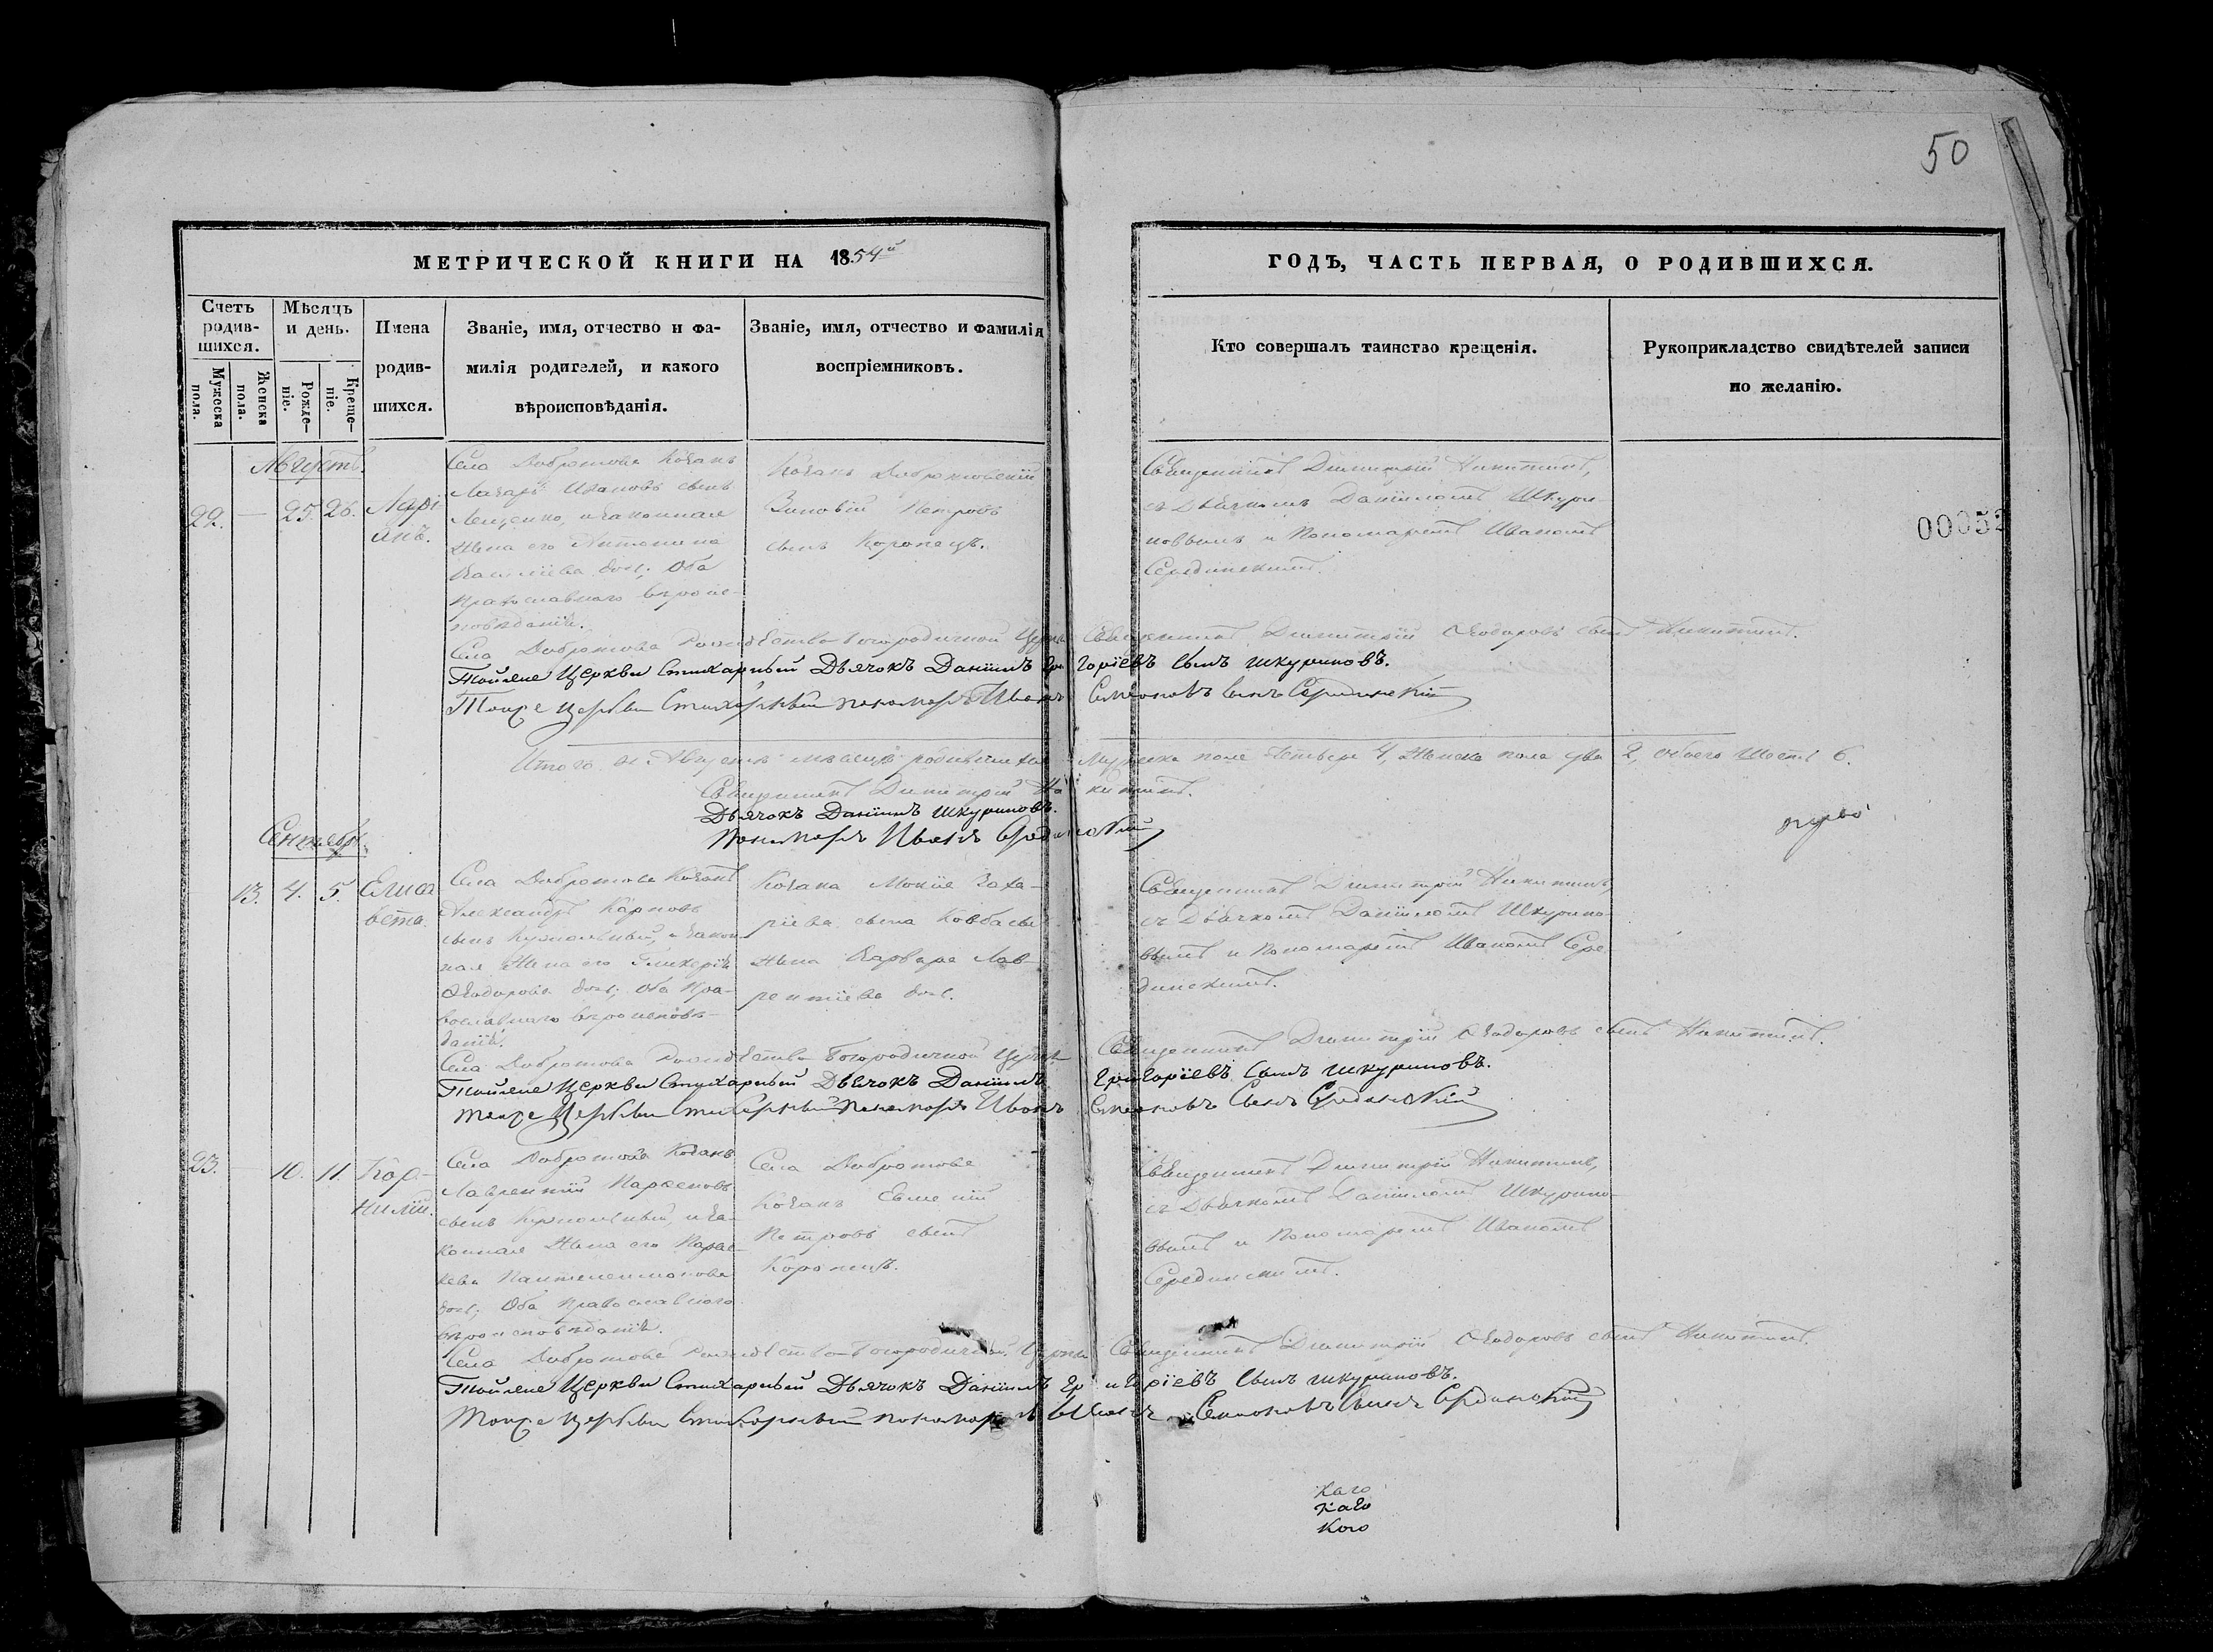 50
МЕТРИЧЕСКОЙ КНИГИ НА 1854й
ГОДЪ, ЧАСТЬ ПЕРВАЯ, О РОДИВШИХСЯ.
Счетъ родив-шихся.
Мужеска пола.
Женска пола.
Мѣсяцъ и день.
Рожде-ніе.
Креще-ніе.
Имена
родив-
шихся.
Званіе, имя, отчество и фа-
милія родителей, и какого
вѣроисповѣданія.
Званіе, имя, отчество и фамилія
воспріемниковъ.
Кто совершалъ таинство крещенія.
Рукоприкладство свидѣтелей записи
по желанію.
Августъ.
22. — 25. 26.
Ларі
анъ.
Села Добротова Козакъ
Лазарь Ивановъ сынъ
Лещенко, и законная
жена его Антонина
Василіева доч; Оба
православнаго вѣроис-
повѣданія.
Козакъ Добротовскій
Зиновій Петровъ
сынъ Коропецъ.
Священникъ Димитрій Никитинъ,
съ Дьячкомъ Даніиломъ Шкури
новымъ и Пономаремъ Иваномъ
Серединскимъ.
00052
Села Добротова Рождество-Богородичной Церкви Священникъ Димитрій Ѳеодоровъ сынъ Никитинъ.
Тойжне Церкви Стихарный Дьячокъ Даніилъ Григоріевъ сынъ шкуриновъ.
Тояже церкви Стихарный пономарь Иванъ Симеоновъ сынъ Серединскій
Итого въ Августѣ мѣсяцѣ родившихся Мужска пола четыре 4, женска пола два 2, обоего шесть 6.
Священникъ Димитрій Никитинъ.
Дьячокъ Даніилъ шкуриновъ.
Пономарь Иванъ Серединскій
Сентябрь.
13. 4. 5.
Елиса
вета.
Села Добротова Козакъ
Александръ Карповъ
сынъ и закон
ная жена его Гликерія
Ѳеодорова доч; Оба пра-
вославнаго вѣроисповѣ-
данія.
Козака Мокія Заха-
ріева сына
жена Варвара Лав-
рентіева доч.
Священникъ Димитрій Никитинъ,
съ Дьячкомъ Даніиломъ Шкурино-
вымъ и Пономаремъ Иваномъ Сере
динскимъ.
Села Добротова Рождество Богородичной Церкви Священникъ Димитрій Ѳеодоровъ сынъ Никитинъ.
Тойжне Церкви Стихарный Дьячокъ Даніилъ Григоріевъ сынъ шкуриновъ.
тояже Церкви Стихарный пономарь Иванъ Симеоновъ Сынъ Серединскій
23. — 10. 11.
Кор-
нилій.
Села Добротова Козакъ
Лаврентій Парѳеновъ
сынъ и за-
конная жена его Парас-
кева Пантелеимонова
доч; Оба православнаго
вѣроисповѣданія.
Села Добротова
Козакъ
Петровъ сынъ
Коропецъ.
Священникъ Димитрій Никитинъ,
съ Дьячкомъ Даніиломъ Шкурино-
вымъ и Пономаремъ Иваномъ
Серединскимъ.
Села Добротова Рождество-Богородичной Церкви Священникъ Димитрій Ѳеодоровъ сынъ Никитинъ.
Тойжне Церкви Стихарный Дьячокъ Даніилъ Григоріевъ сынъ шкуриновъ.
Тояже церкви Стихарный пономарь Иванъ Симеоновъ Сынъ Серединскій